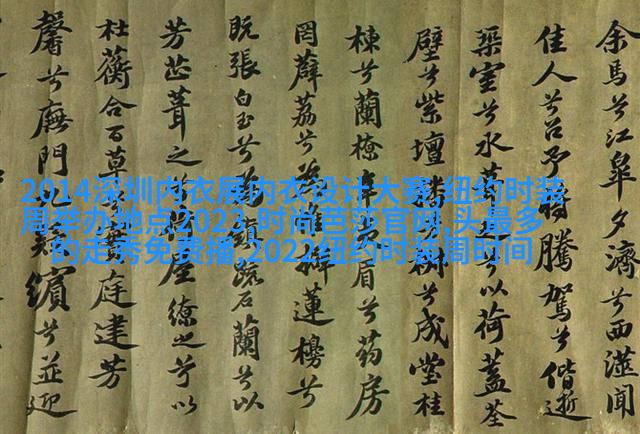 余馬兮江皋夕濟兮西澨聞
佳人兮召予將騰駕兮偕逝
築室兮水兮以荷蓋荃
壁兮紫壇兮成堂桂
棟兮蘭橑眉兮药房
罔薜荔兮蓮櫋兮
既張白玉兮鎮疏石蘭兮以
芳芷葺之屋繚之兮以
杜蘅合百草庭建芳
馨兮廡門繽兮並迎
2014深圳内衣展内衣设计大赛,纽约时装
周举办地点2023,时尚芭莎官网,头最多
的走秀免费播,2022纽约时装周时间